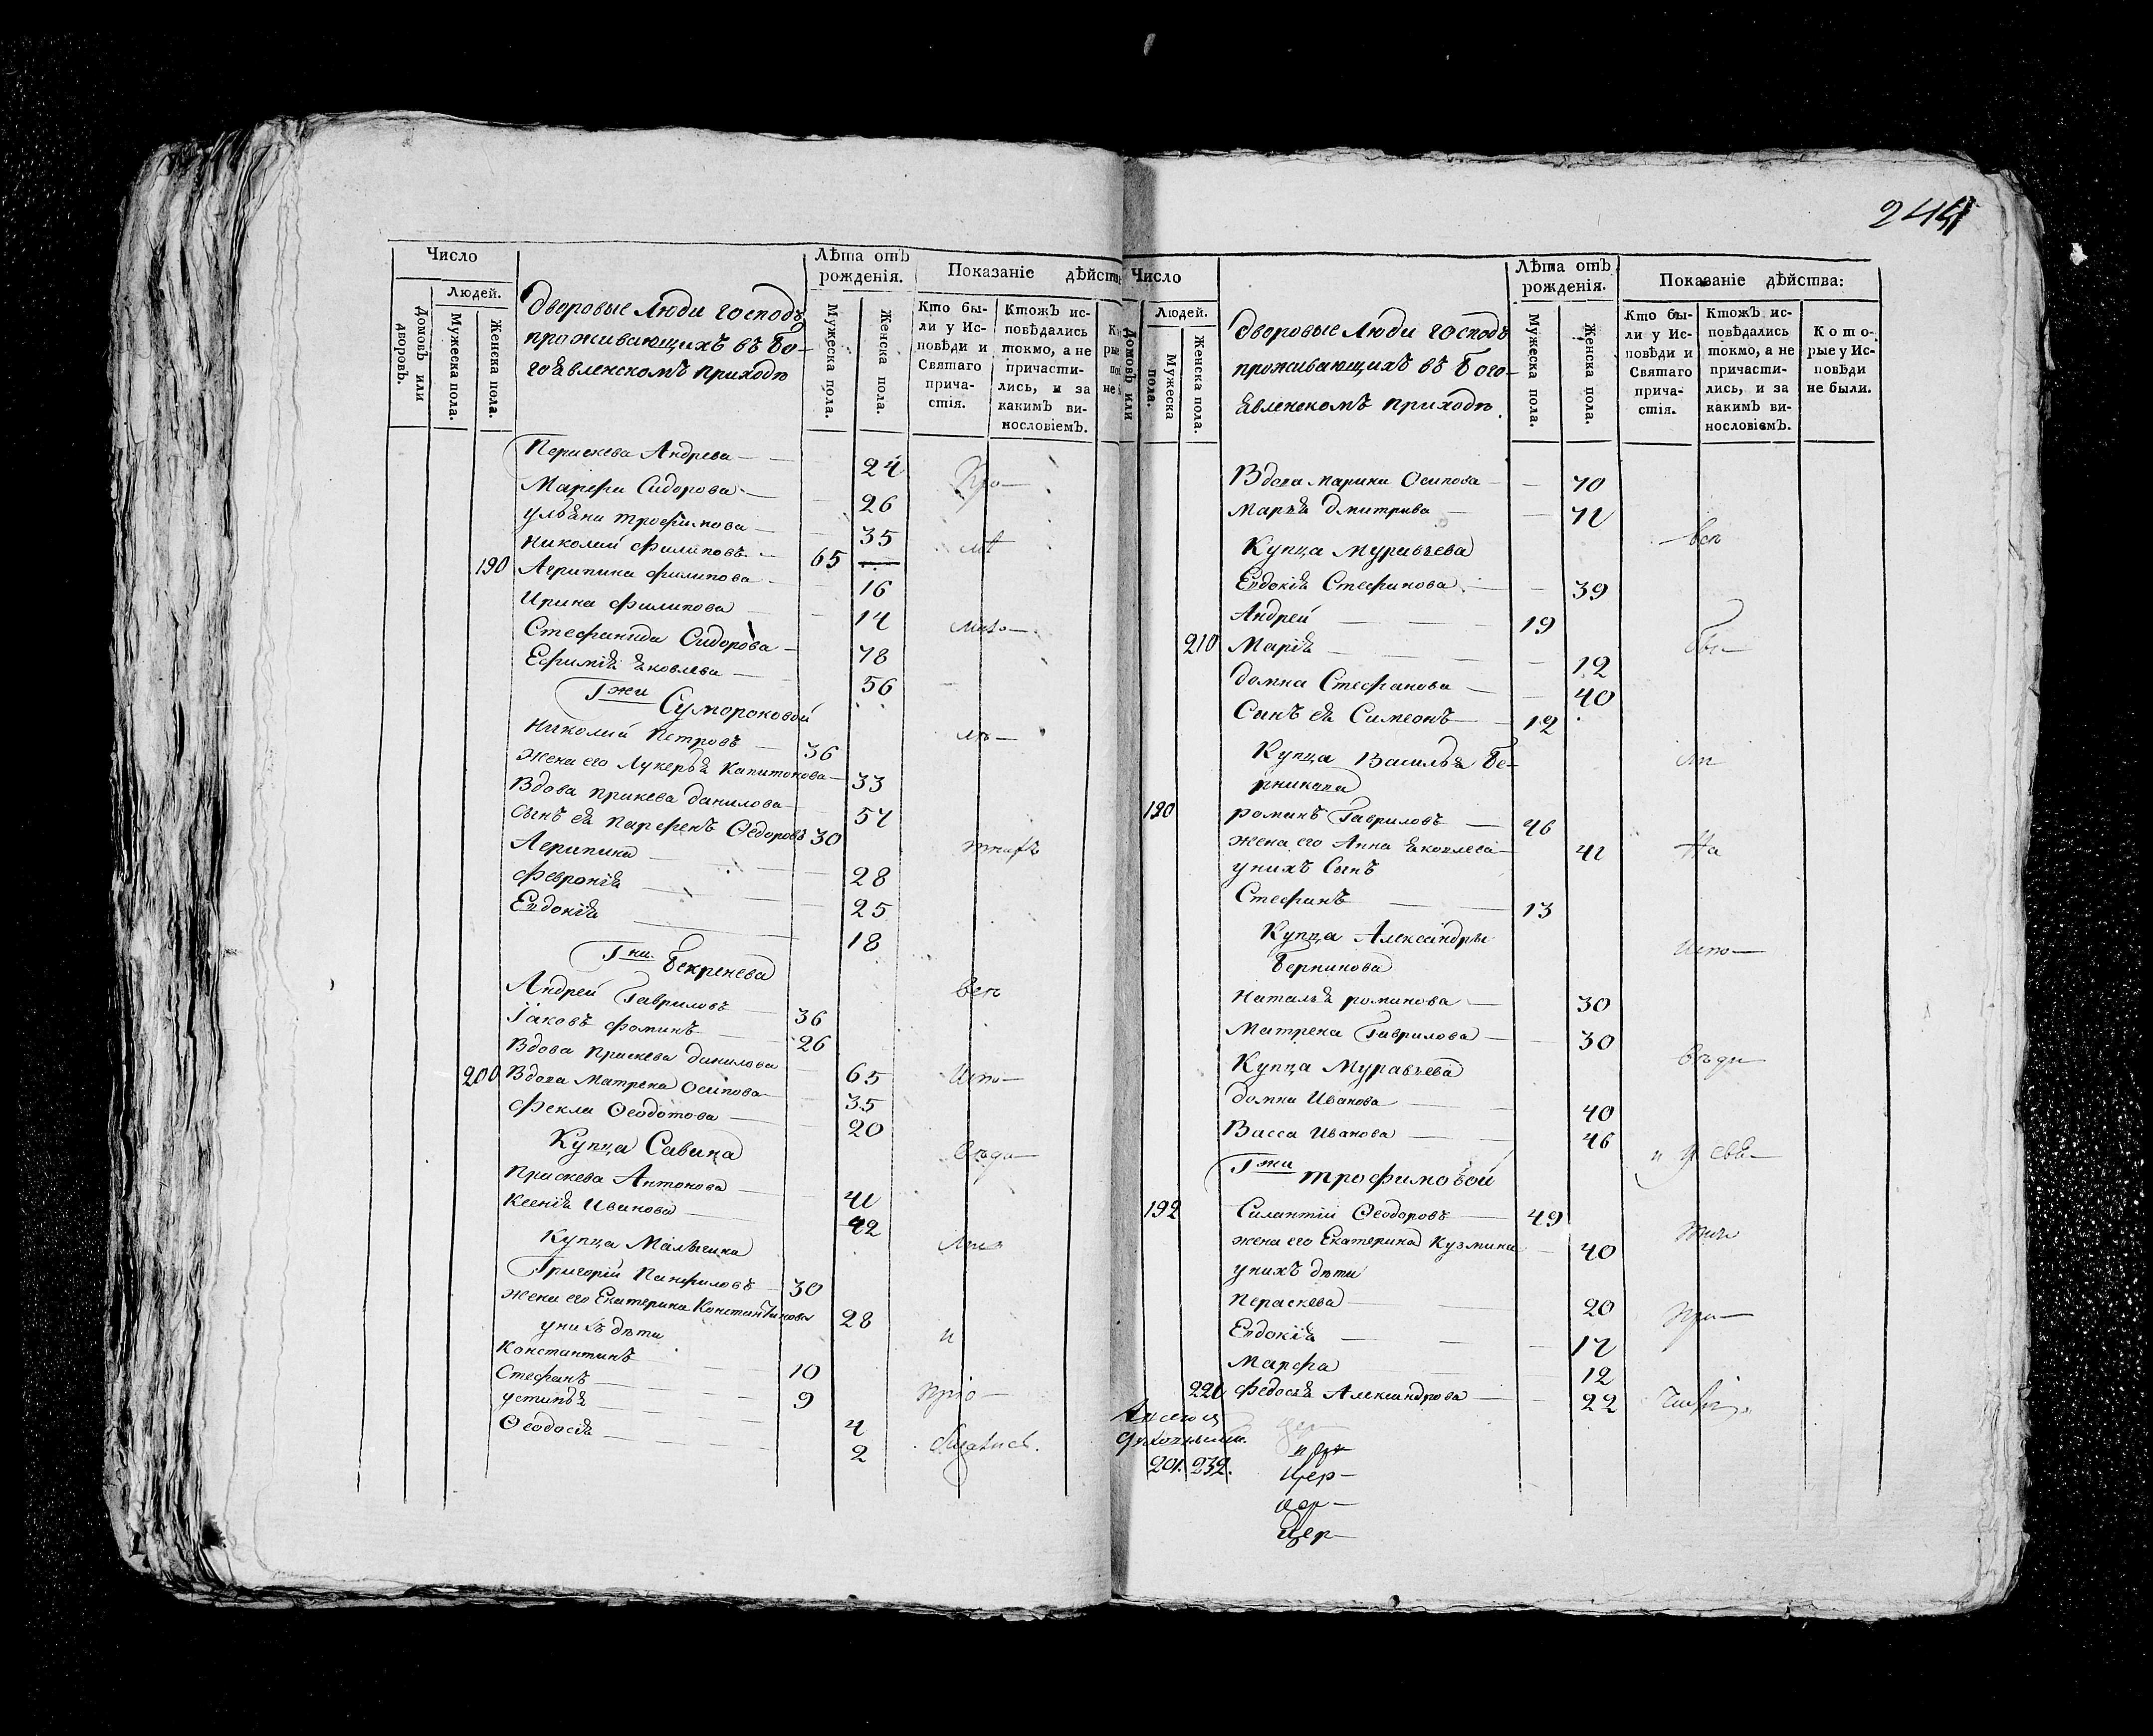 Число
Людей.
Домовъ или дворовъ.
Мужеска пола.
Женска пола.
Дворовые Люди господъ
проживающихъ въ Бо-
гоявленскомъ приходѣ
Лѣта отъ рожденія.
Мужеска пола.
Женска пола.
Показаніе дѣйств
Кто бы-
ли у Ис-
повѣди и
Святаго
прича-
стія.
Ктожъ ис-
повѣдались
токмо, а не
причасти-
лись, и за
какимъ ви-
нословіемъ.
Пераскева Андрева — 24
Марѳа Сидорова — 26
Ульяна Трофимова — 35
Николай Филиповъ — 65
190 Агрипина Филипова — 16
Ирина Филипова — 14
Стефанида Сидорова — 78
Ефимія Яковлева — 56
Гжи Сумороковой
Николай Петровъ — 36
Жена его Лукерья Капитонова — 33
Вдова Праскева Данилова — 57
Сынъ ея Парфенъ Ѳедоровъ 30
Агрипина — 28
Февронія — 25
Евдокія — 18
Гна Бекренева
Андрей Гавриловъ — 36
Іаковъ Фоминъ — 26
Вдова Праскева Данилова 65
200 Вдова Матрена Осипова — 35
Фекла Ѳеодотова — 20
Купца Савина
Праскева Антонова — 41
Ксенія Иванова — 42
Купца Малыгина
Григорій Панфиловъ 30
Жена его Екатерина Константинова 28
у нихъ дѣти
Константинъ — 10
Стефанъ — 9
Устинья — 4
Ѳеодосія — 2
244
Число
Людей.
Домовъ или
Мужеска пола.
Женска пола.
Дворовые Люди господъ
проживающихъ въ Бого-
явленскомъ приходѣ.
Лѣта отъ рожденія.
Мужеска пола.
Женска пола.
Показаніе дѣйства:
Кто бы-
ли у Ис-
повѣди и
Святаго
прича-
стія.
Ктожъ ис-
повѣдались
токмо, а не
причасти-
лись, и за
какимъ ви-
нословіемъ.
Кото-
рые у Ис-
повѣди
не были.
Вдова Марина Осипова — 70
Марья Дмитрива — 71
Купца Муравьева
Евдокія Стефанова — 39
Андрей — 19
210 Марія — 12
Домна Стефанова — 40
Сынъ ея Симеонъ — 12
Купца Василья Бе-
рникова
190 Романъ Гавриловъ — 46
Жена его Анна Яковлева — 41
у нихъ Сынъ
Стефанъ — 13
Купца Александры
Берникова
Наталья Романова — 30
Матрена Гаврилова — 30
Купца Муравьева
Домна Иванова — 40
Васса Иванова — 46
Гжи Трофимовой
192 Силантій Ѳеодоровъ — 49
жена его Екатерина Кузмина — 40
у нихъ дѣти
Пераскева — 20
Евдокія — 17
Марфа 12
220 Федосья Александрова — 22
201. 232.
Цер—